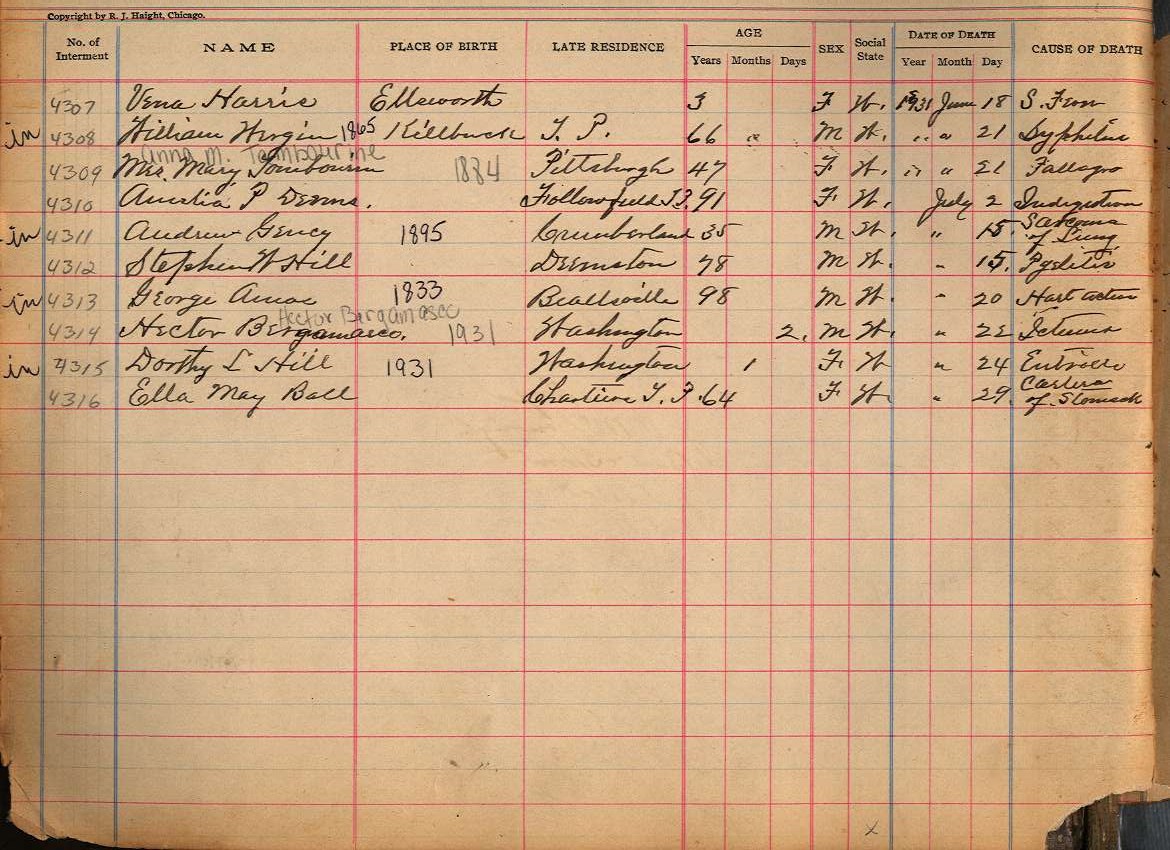 Copyright by R. J. Haight, Chicago.
No. of Interment NAME PLACE OF BIRTH LATE RESIDENCE AGE Years Months Days SEX Social State DATE OF DEATH Year Month Day CAUSE OF DEATH
4307 Vena Harris Ellsworth 3 F W. 1931 June 18 S.
in 4308 William 1865 Killbuck T. P. 66 " M W. " " 21 Syphilis
Anna M. Tambourine
4309 Mrs. Mary 1884 Pittsburgh 47 F W. " " 21
4310 P Deems. Fallowfield T.P. 91 F W. July 2 Indigestion
in 4311 Andrew Gency 1895 Cumberland 35 M W. " 15 Sarcoma of Lung
4312 Stephen W Hill Deemston 78 M W. " 15. Pyelitis
in 4313 George Amos 1833 Beallsville 98 M W. " 20 Hart action
Hector Bergamasco
4314 Hector Bergamasco. 1931 Washington 2. M W. " 22 Icterus
in 4315 Dorthy L Hill 1931 Washington 1 F W " 24
4316 Ella May Ball Chartiers T. P. 64 F W. " 29. of Stomach
x